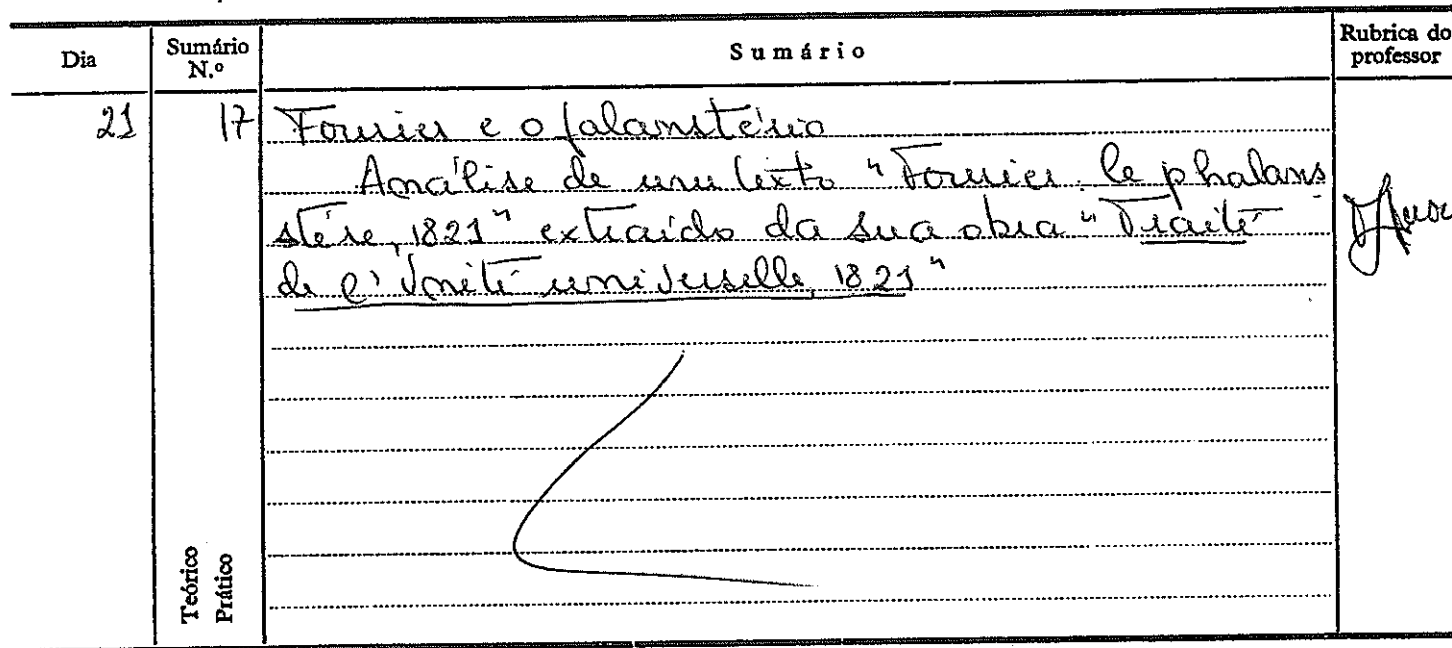 Dia Sumário N.º Sumário Rubrica do professor
21 17 Fourier e o falanstério
Análise de um texto "Fourier: le phalans
stère, 1821" extraído da sua obra "Traité
de l'Unité universelle, 1821"
Teórico
Prático